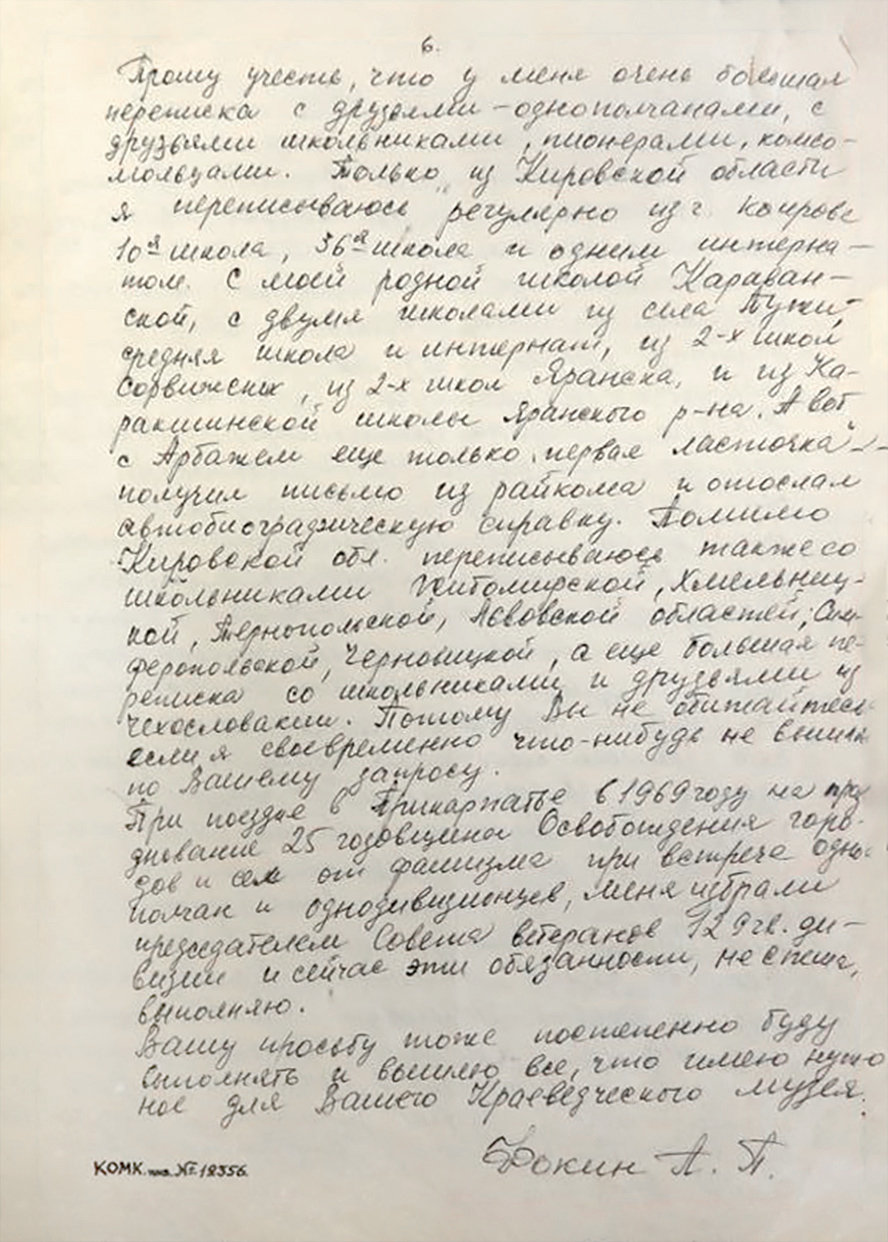 6.
Прошу учесть, что у меня очень большая
переписка с друзьями-однополчанами, с
друзьями школьниками, пионерами, комсо-
мольцами. Только из Кировской области
я переписываюсь регулярно из г. Кирова
10я школа, 36я школа и одним интерна-
том. С моей родной школой Караван-
ской, с двумя школами из села Тужи-
средняя школа и интернат, из 2-х школ
Сорвиженск, из 2-х школ Яранска, и из Ка-
ракшинской школы Яранского р-на. А вот
с Арбажем еще только "первая ласточка"-
получил письмо из райкома и отослал
автобиографическую справку. Помимо
Кировской обл. переписываюсь также со
школьниками Житомирской, Хмельниц-
кой, Тернопольской, Львовской областей, Сим-
феропольской, Черновицкой, а еще большая пе-
реписка со школьниками и друзьями из
Чехословакии. Потому Вы не обижайтесь
если я своевременно что-нибудь не вышлю
по Вашему запросу.
При поездке в Прикарпатье в 1969 году на праз
днование 25 годовщины Освобождения горо-
дов и сел от фашизма при встрече одно-
полчан и однодивизионцев, меня избрали
председателем Совета ветеранов 129 гв. ди-
визии и сейчас эти обязанности, не спеша,
выполняю.
Вашу просьбу тоже постепенно буду
исполнять и вышлю все, что имею нужно
ное для Вашего Краеведческого музея.
Фокин А. П.
КОМК инв. № 18356